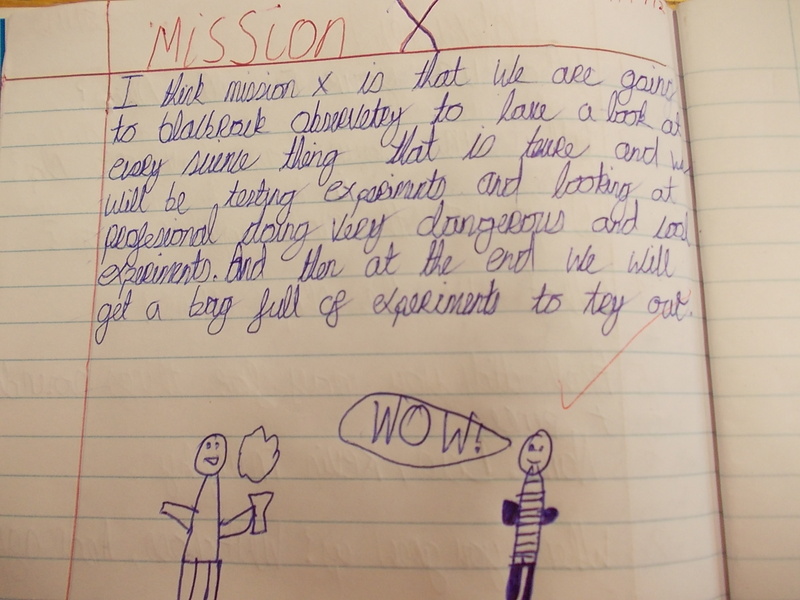 MISSION X
I think mission X is that We are going
to blackrock observatory to have a look at
every science thing that is there and we
will be testing experiments and looking at
profesional doing very dangerous and cool
experiments. And then at the end we will
get a bag full of experiments to try out.
WOW!